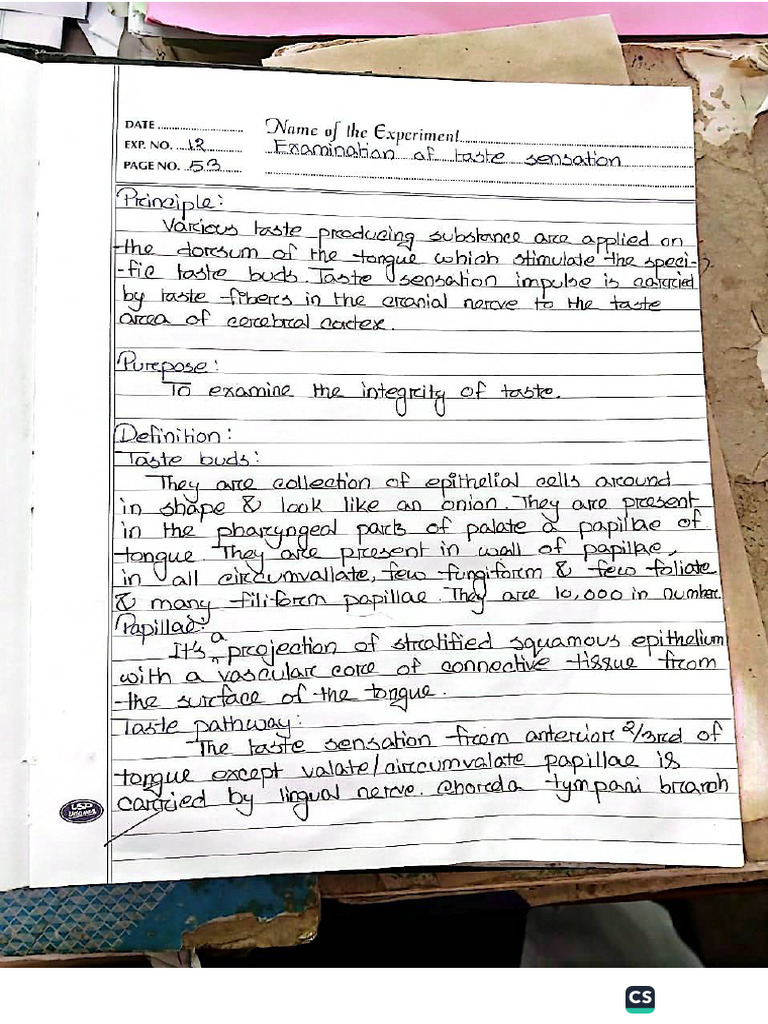 DATE
Name of the Experiment
EXP. NO. 12
Examination of taste sensation
PAGE NO. 53
Principle:
Various taste producing substance are applied on
the dorsum of the tongue which stimulate the speci-
-fic taste buds. Taste sensation impulse is carried
by taste fibers in the cranial nerve to the taste
area of cerebral cortex.
Purpose:
To examine the integrity of taste.
Definition:
Taste buds:
They are collection of epithelial cells around
in shape & look like an onion. They are present
in the pharyngeal parts of palate & papillae of
tongue. They are present in wall of papillae,
in all circumvallate, few fungiform & few foliate
& many filiform papillae. They are 10,000 in number.
Papillae:
It's a projection of stratified squamous epithelium
with a vascular core of connective tissue from
the surface of the tongue.
Taste pathway:
The taste sensation from anterior 2/3rd of
tongue except valate/circumvalate papillae is
carried by lingual nerve. Chorda tympani branch
CS